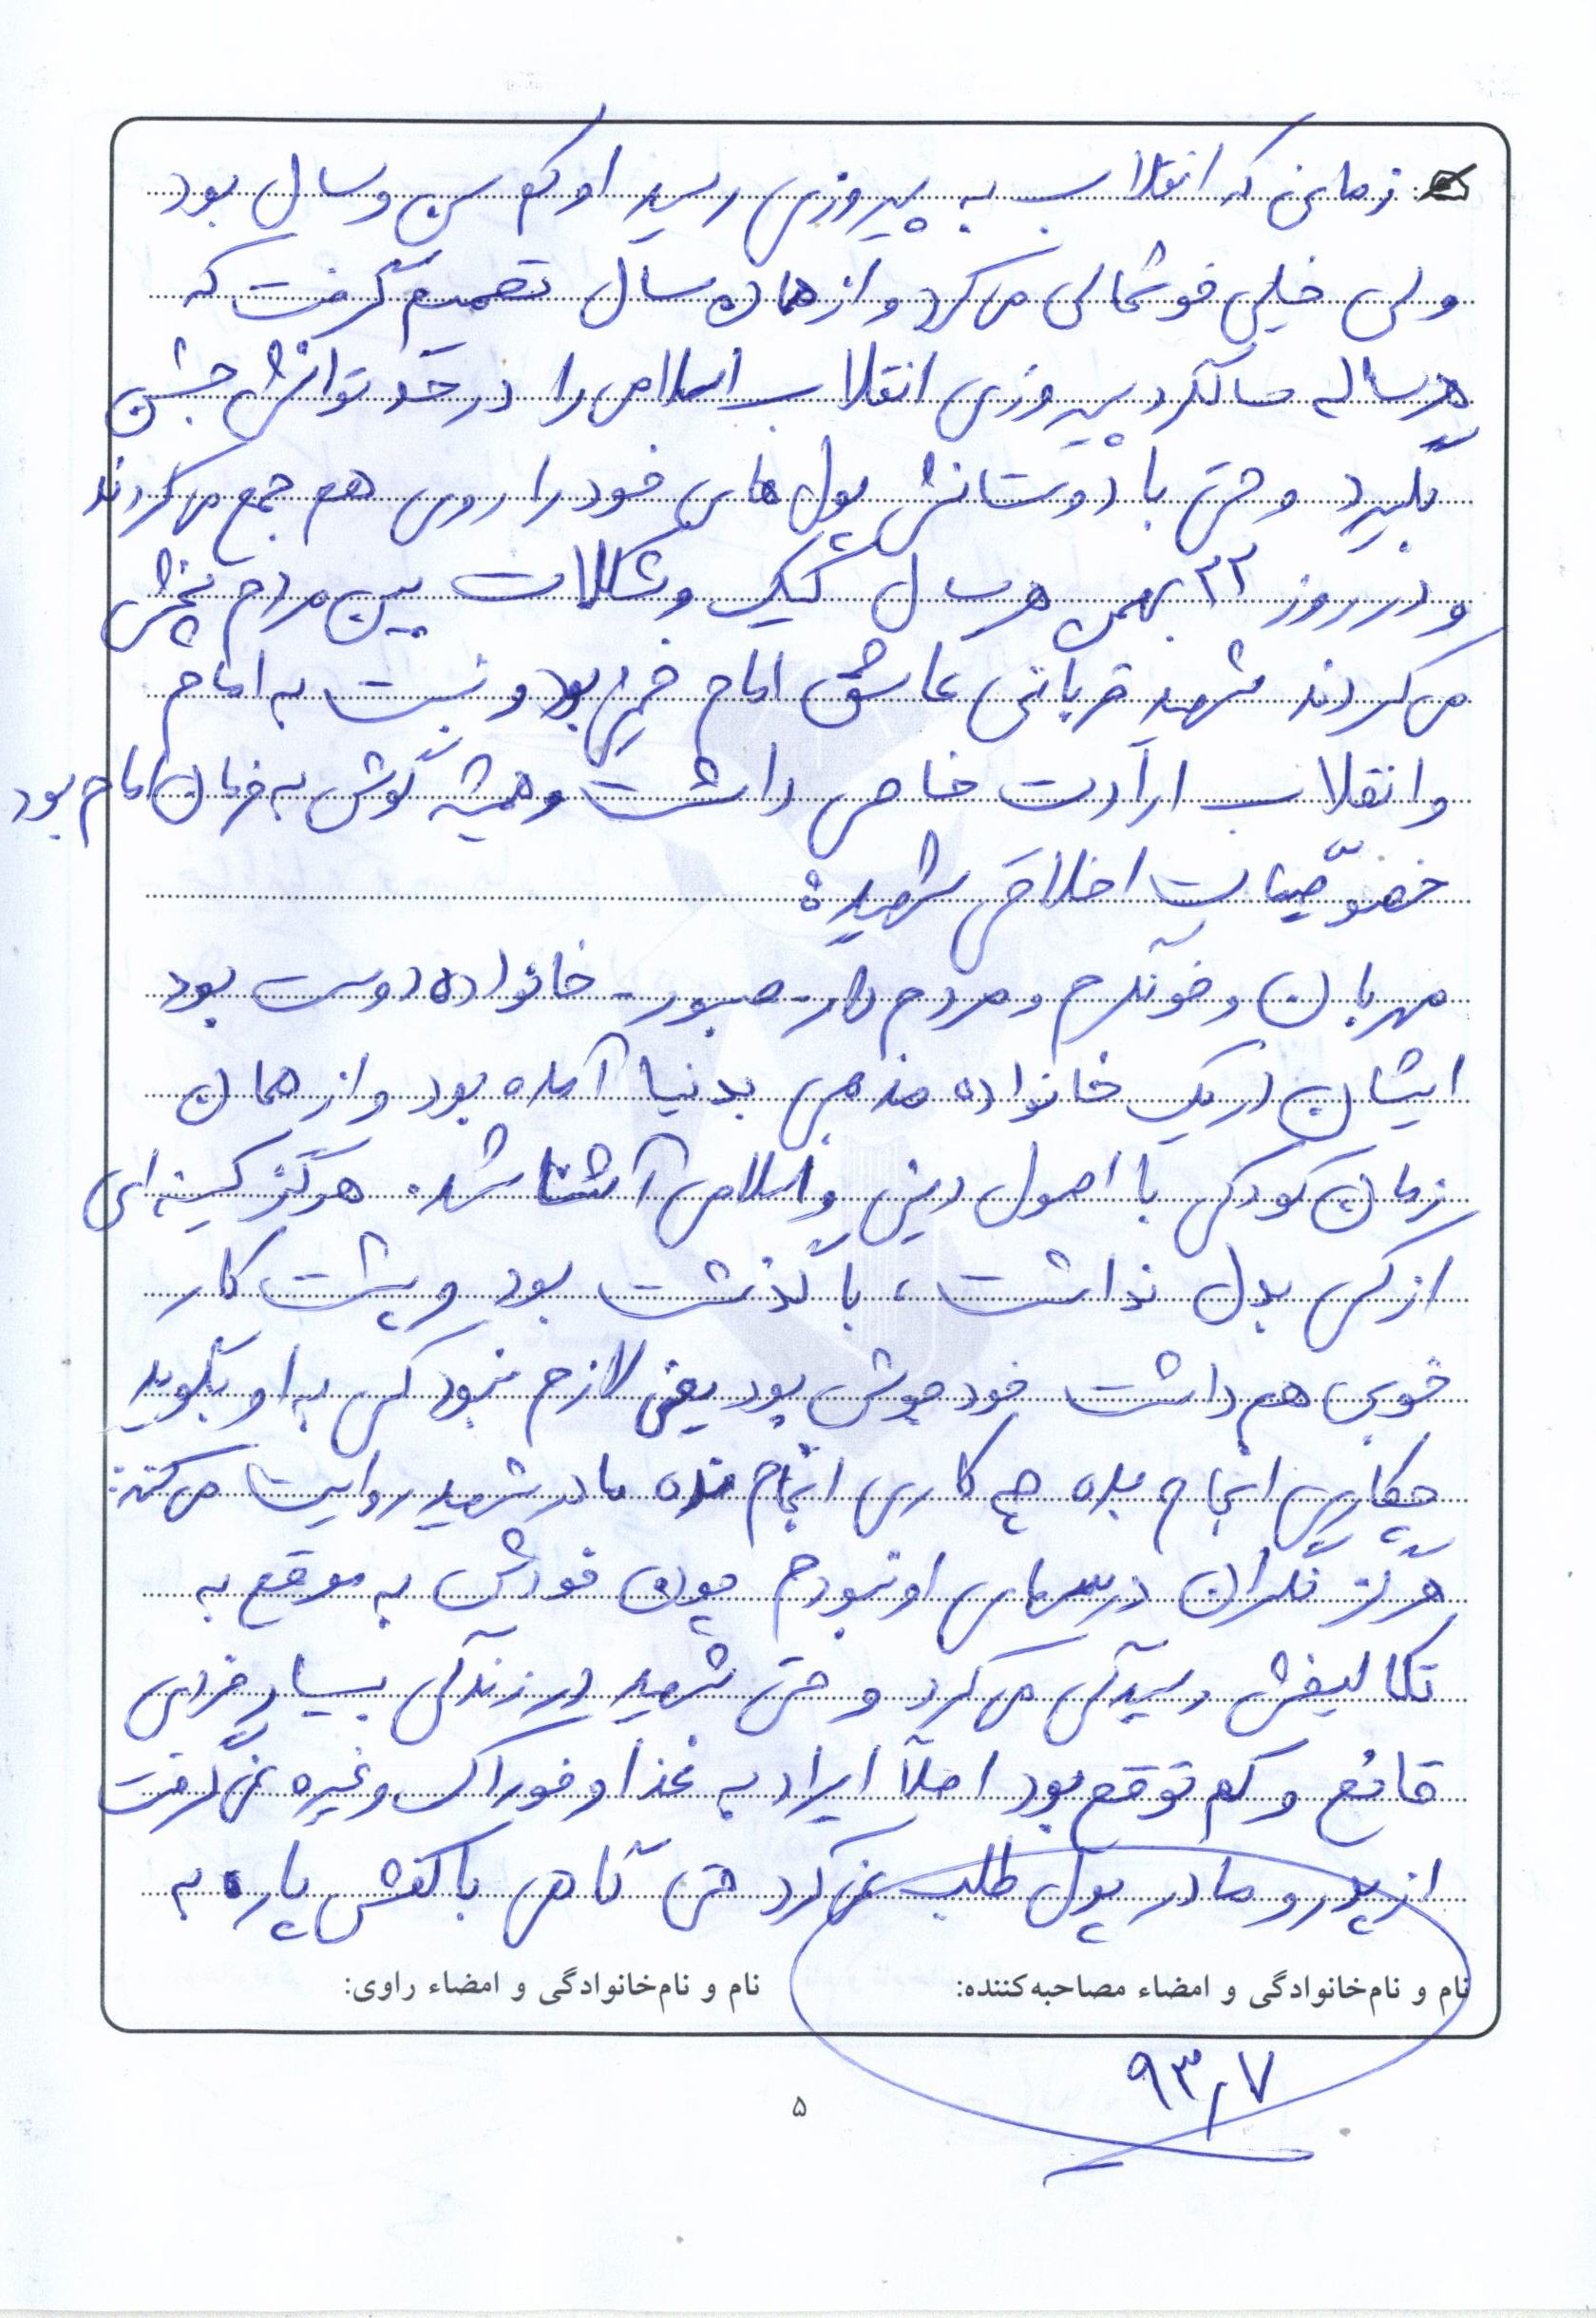 زمانی که انقلاب به پیروزی رسید او کم سن و سال بود
ولی خیلی خوشحالی می کرد و از همان سال تصمیم گرفت که
هر ساله سالگرد پیروزی انقلاب اسلامی را در حد توانش جشن
بگیرد و حتی با دوستانش پول های خود را روی هم جمع می کردند
و در روز ۲۲ بهمن هر سال کیک و شکلات بین مردم پخش
می کردند شهید قربانی عاشق امام خمینی بود و نسبت به امام
و انقلاب ارادت خاصی داشت و همیشه گوش به فرمان امام بود
خصوصیات اخلاقی شهید:
مهربان و خونگرم و مردم دار - صبور - خانواده دوست بود
ایشان در یک خانواده مذهبی بدنیا آمده بود و از همان
زمان کودکی با اصول دینی و اسلامی آشنا شد. هرگز کینه ای
از کسی بدل نداشت، با گذشت بود و پشت کار
خوبی هم داشت خودجوش بود یعنی لازم نبود کسی به او بگوید
چکاری انجام بده چه کاری انجام نده مادر شهید روایت می کند:
هرگز نگران درسهای او نبودم چون خودش به موقع به
تکالیفش رسیدگی می کرد و حتی شهید در زندگی بسیار فردی
قانع و کم توقع بود اصلاً ایراد به غذا و خوراک و غیره نمی گرفت
از پدر و مادر پول طلب نمی کرد حتی گاهی با کفش پاره به
نام و نام‌خانوادگی و امضاء مصاحبه‌کننده:
نام و نام‌خانوادگی و امضاء راوی:
۹۳٫۷
۵